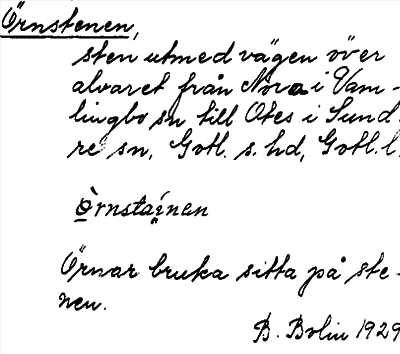 Örnstenen,
sten utmed vägen över
alvaret från Nora i Vam-
lingbo sn till Otes i Sund-
re sn, Gotl. s. hd, Gotl. l.
Òrnstaínen
Örnar bruka sitta på ste-
nen.
B. Bolin 1929